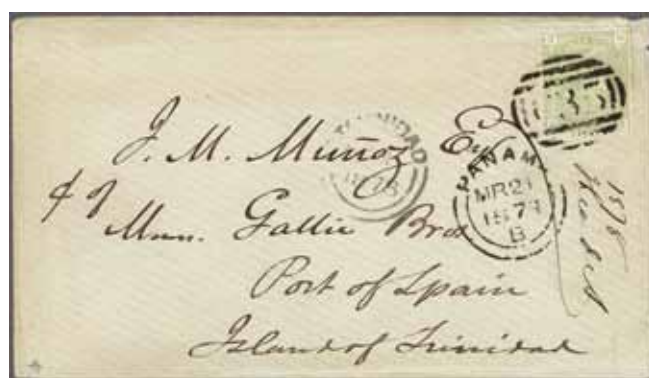 J. M. Muñoz Esq
Messrs. Gallie Bros
Port of Spain
Island of Trinidad
TRINIDAD
PANAMA
MR 21
B